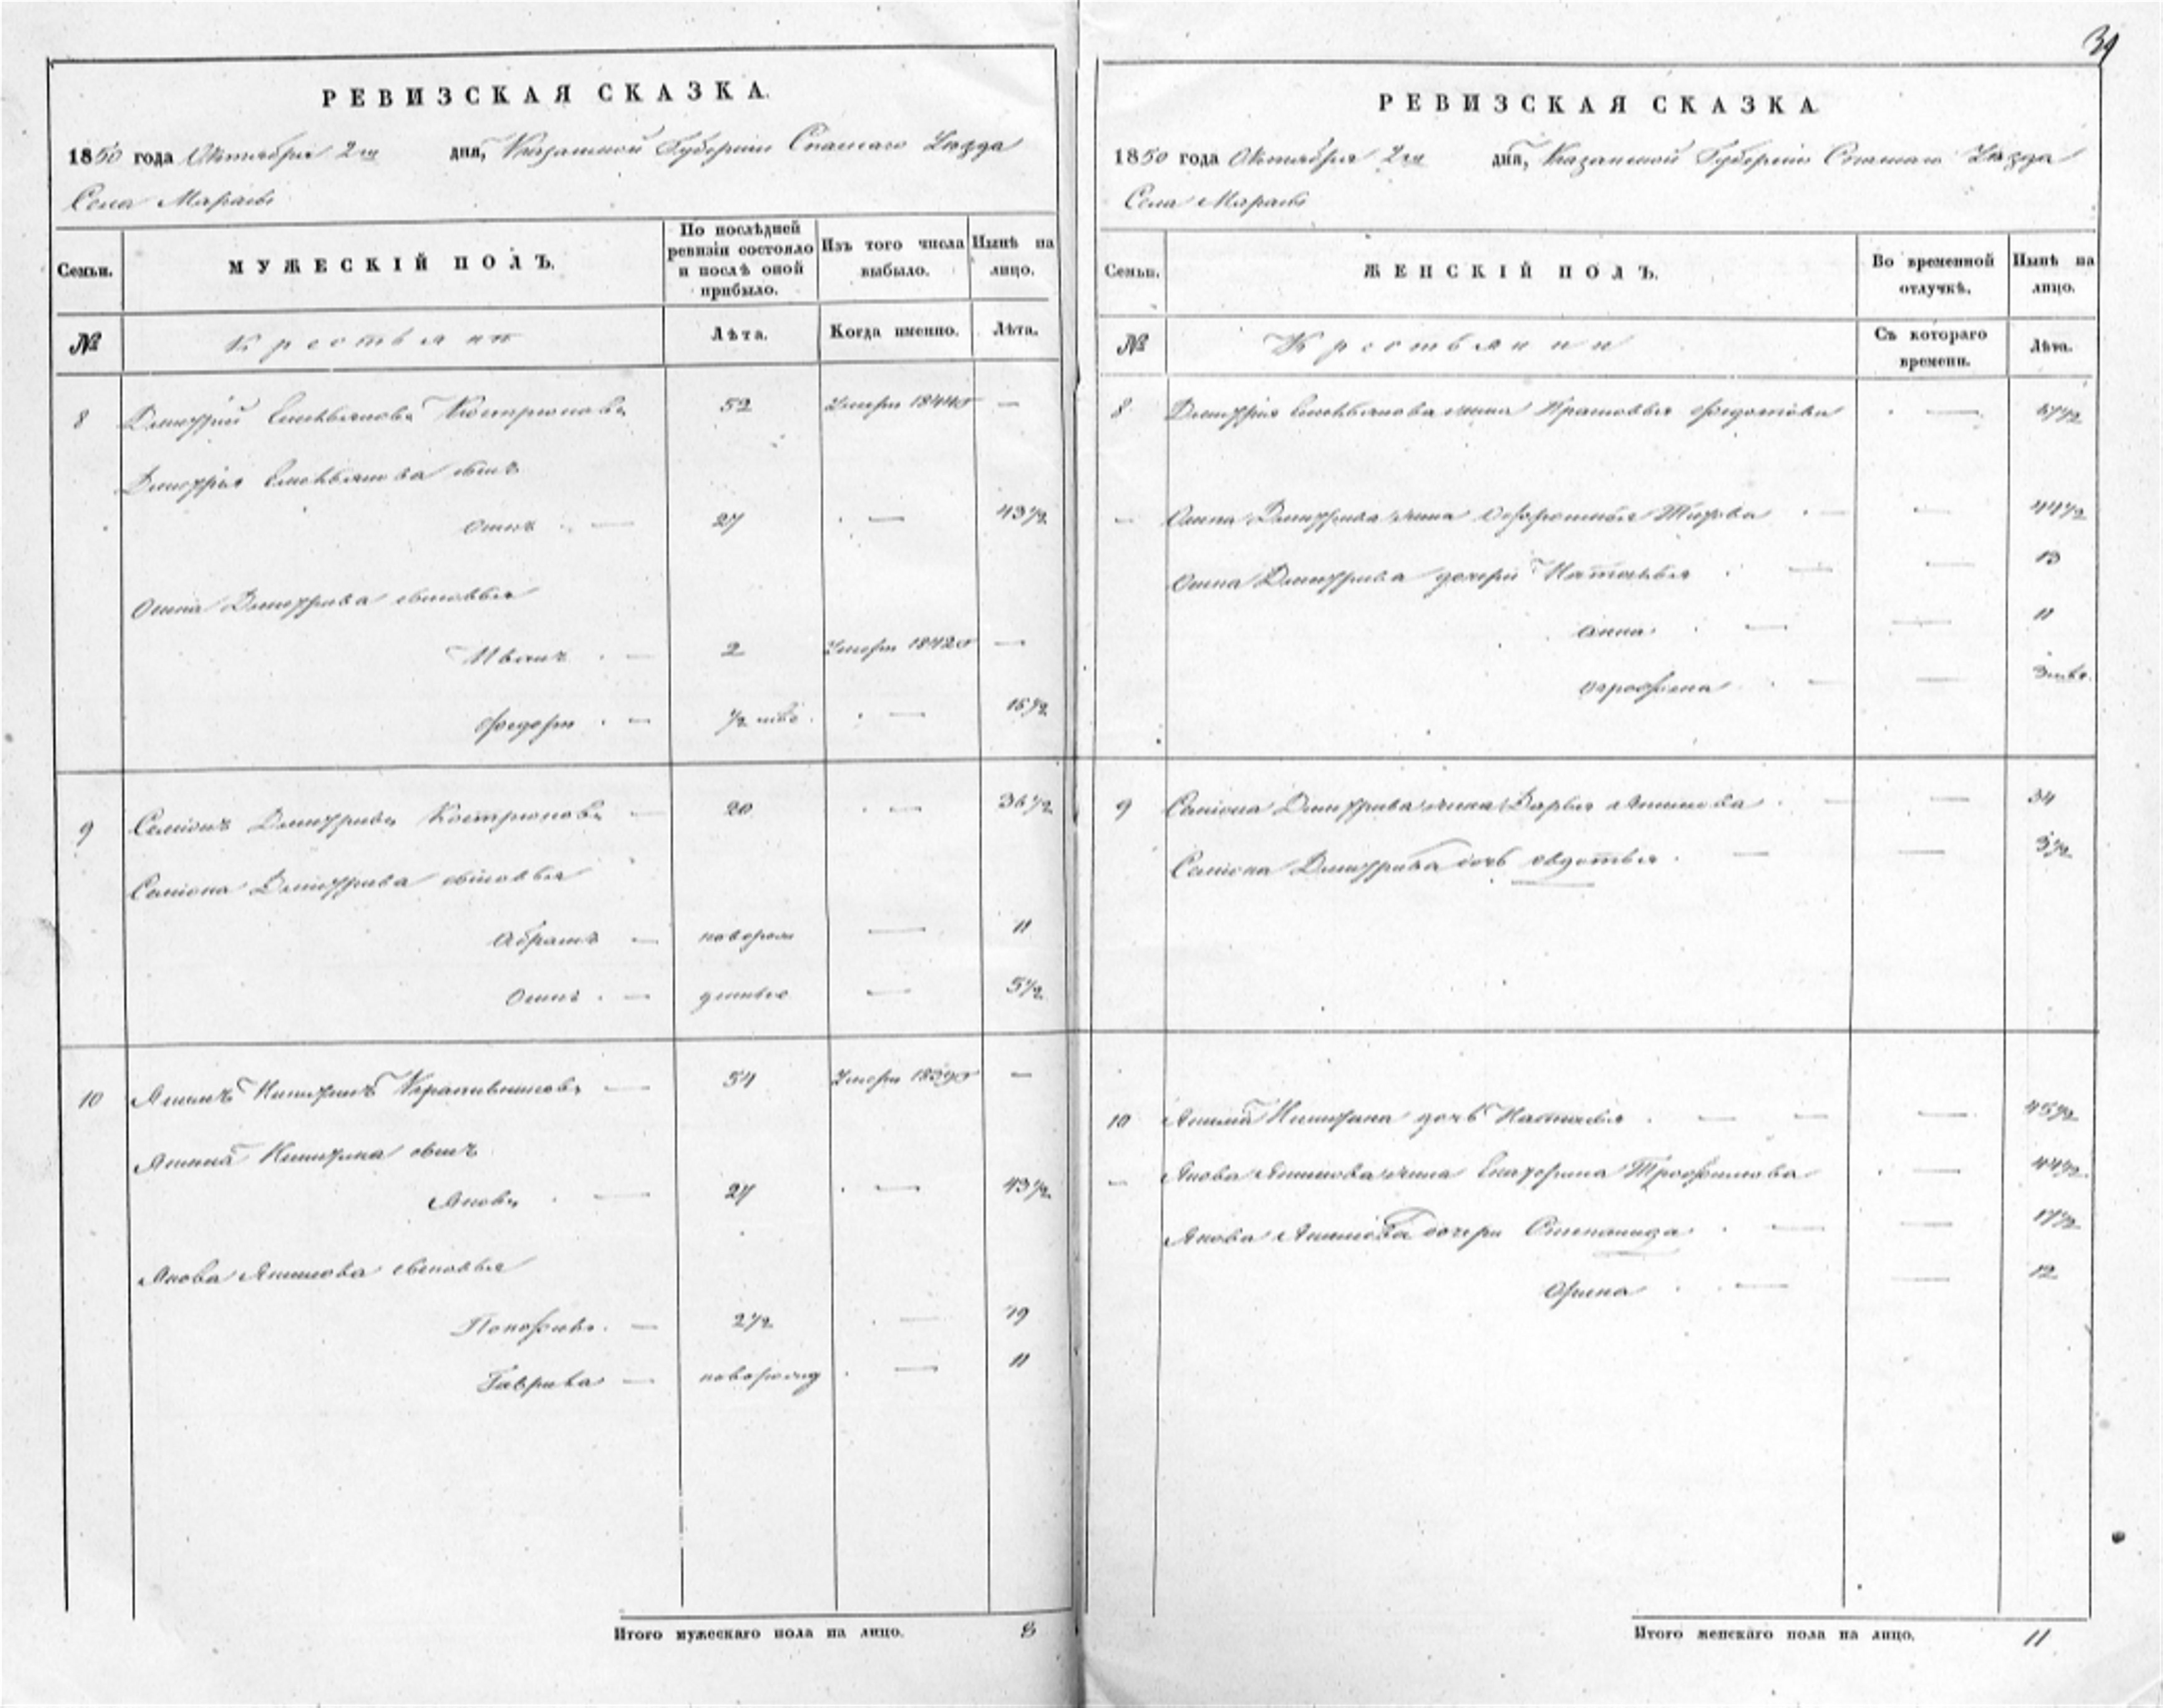 34
РЕВИЗСКАЯ СКАЗКА.
1850 года Октября 2го дня, Казанской Губернiи Спаскаго Уѣзда
Села
Семьи.
МУЖЕСКІЙ ПОЛЪ.
По послѣдней ревизіи состояло и послѣ оной прибыло.
Изъ того числа выбыло.
Нынѣ на лицо.
№
Крестьянъ
Лѣта.
Когда именно.
Лѣта.
8 Дмитрій Емельяновъ 52 Умеръ 1844го —
Дмитрія Емельянова сынъ
Осипъ — 27 — 43½
Осипа Дмитріева сыновья
Иванъ — 2 Умеръ 1842го —
Федоръ — ½ — 16½
9 Семіонъ Дмитріевъ — 20 — 36½
Семіона Дмитріева сыновья
Абрамъ — новорож — 11
Осипъ — — 5½
10 Акимъ Никитинъ — 54 Умеръ 1839го —
Акима Никитина сынъ
Яковъ — 27 — 43½
Якова Акимова сыновья
— 2½ — 19
Гаврила — новорожд — 11
Итого мужескаго пола на лицо. 8
РЕВИЗСКАЯ СКАЗКА
1850 года Октября 2го дня, Казанской Губернiи Спаскаго Уѣзда
Села
Семьи.
ЖЕНСКІЙ ПОЛЪ.
Во временной отлучкѣ.
Нынѣ на лицо.
№
Крестьянки
Съ котораго времени.
Лѣта.
8 Дмитрія Емельянова жена Федотова — 67½
— Осипа Дмитріева жена Титова — — 44½
Осипа Дмитріева дочери Наталья — — 13
Анна — — 11
Аграфена — — 3
9 Семіона Дмитріева жена Дарья Акимова — — 34
Семіона Дмитріева дочь Авдотья — — 3½
10 Акима Никитина дочь Настасья — — — 45½
— Якова Акимова жена Екатерина Трофимова — 44½
Якова Акимова дочери Степанида — — 17½
Орина — — 12
Итого женскаго пола на лицо. 11